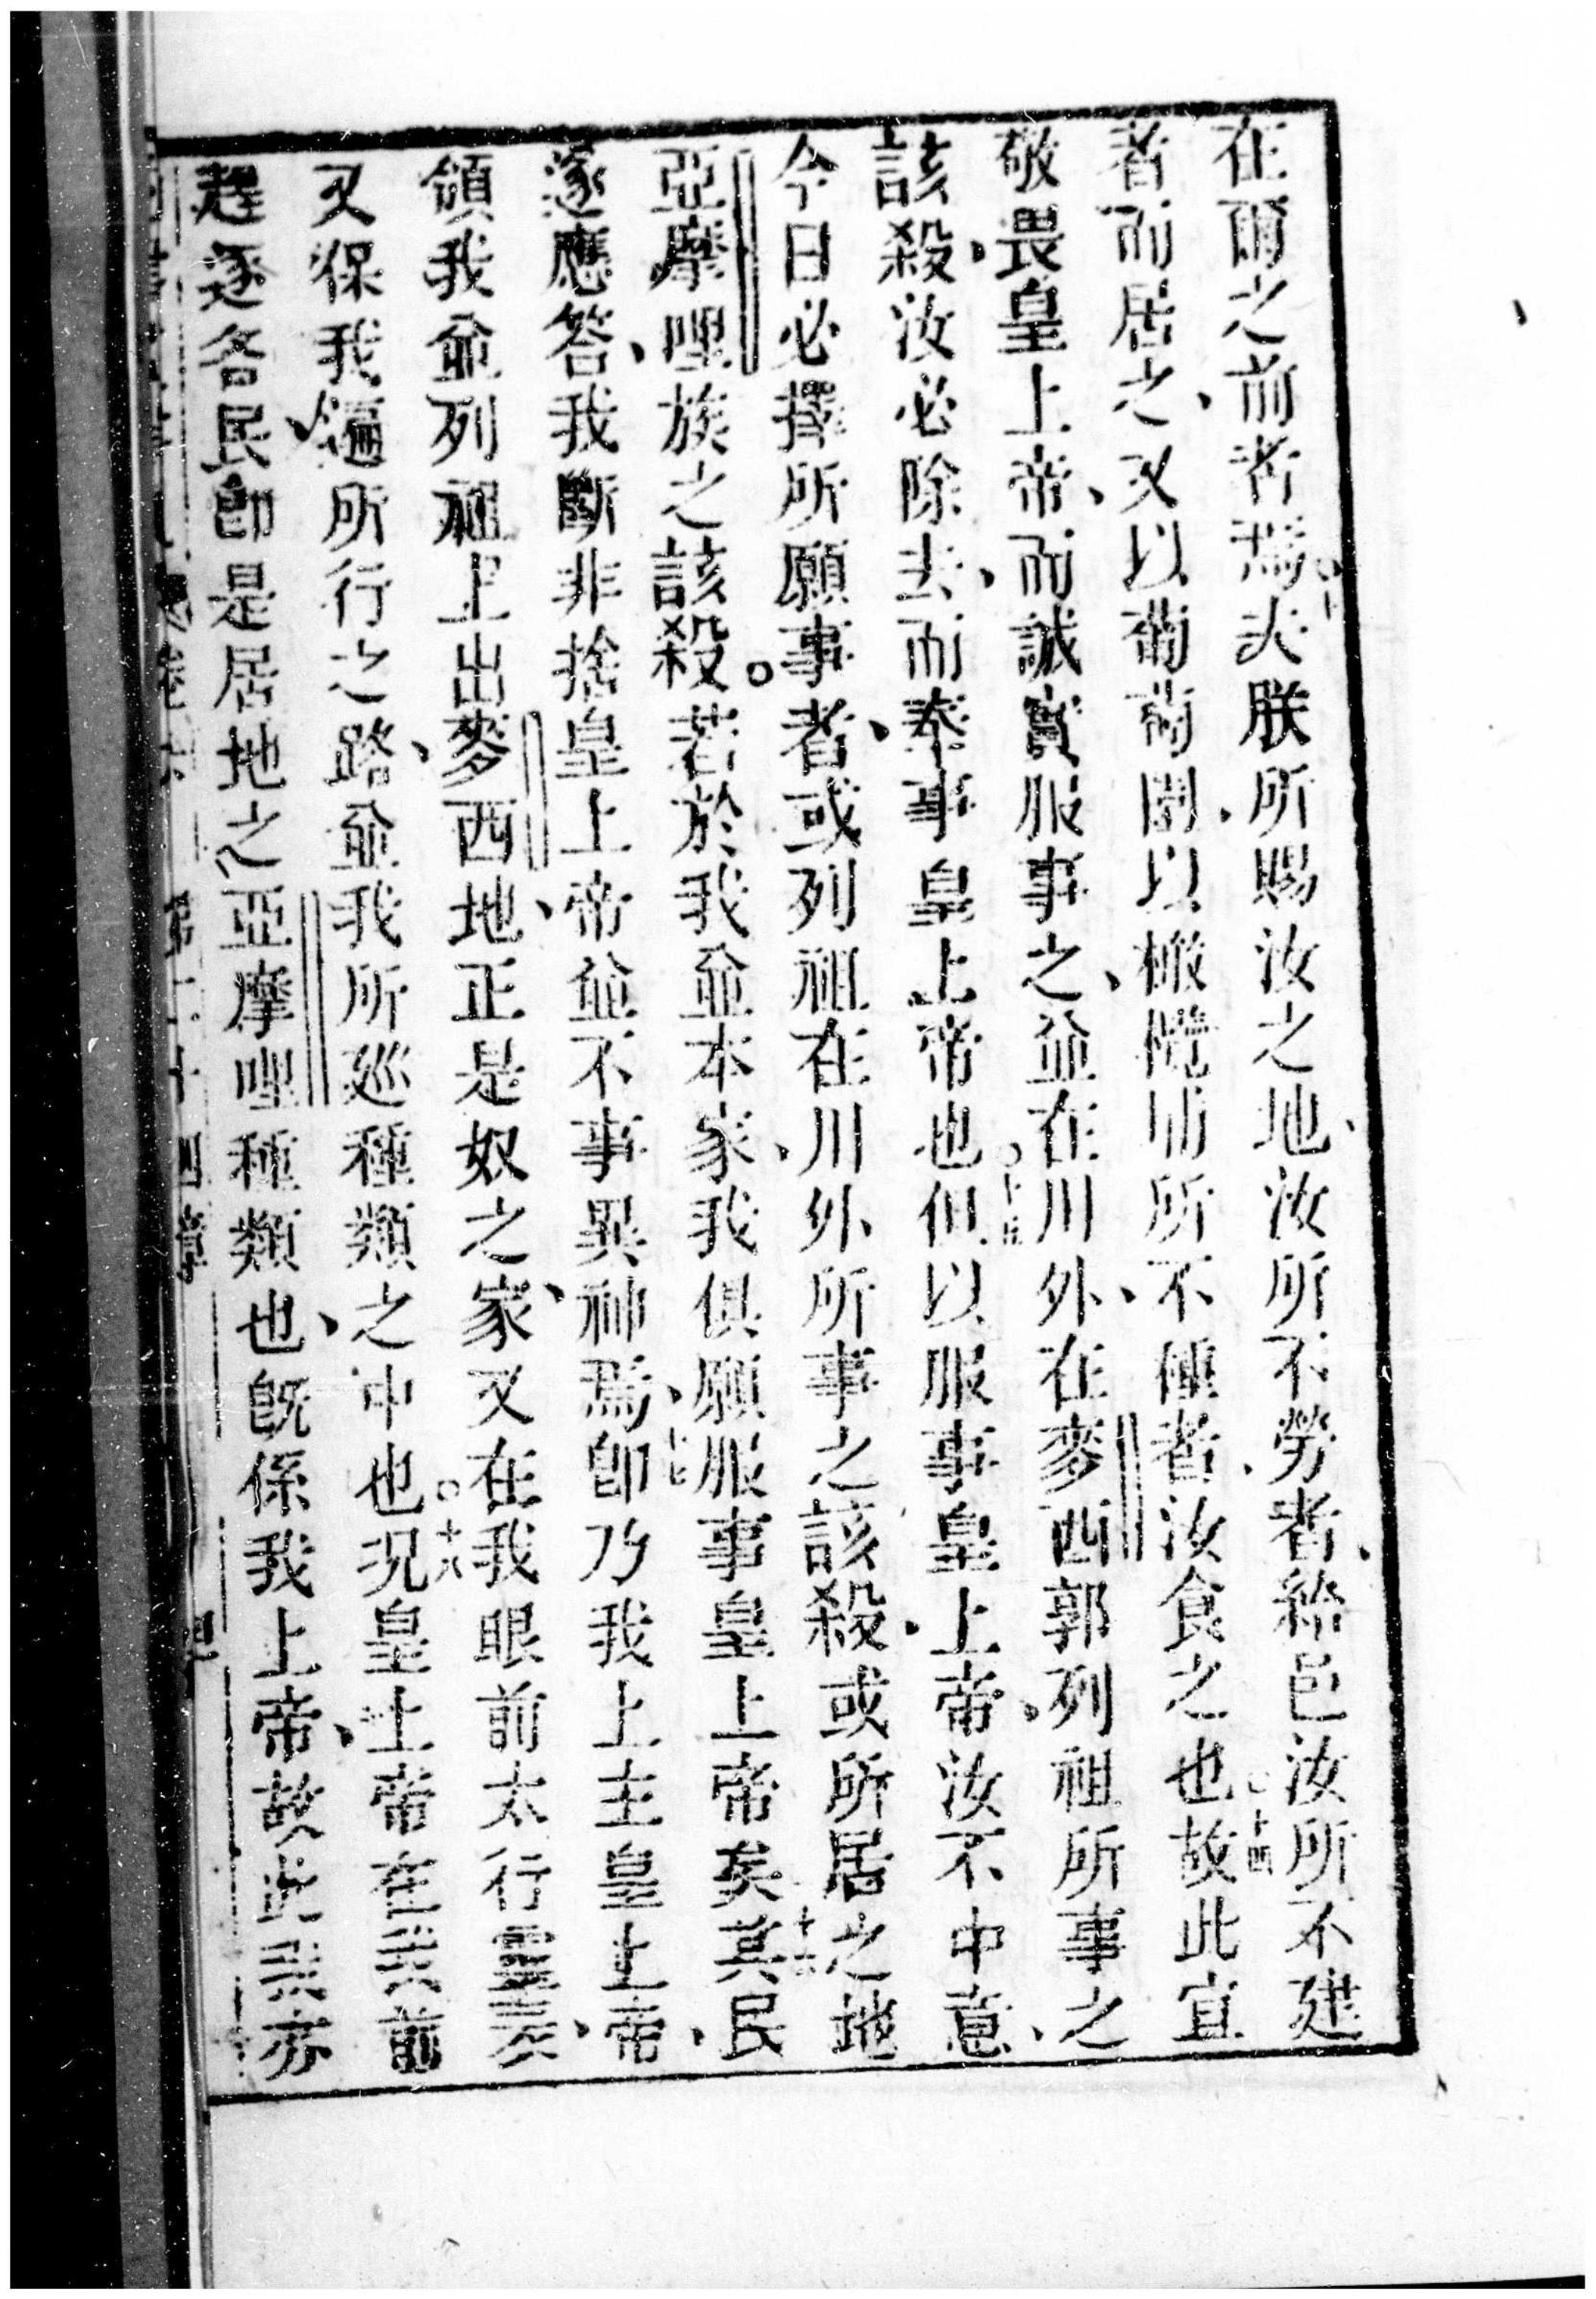 在爾之前者焉。十三夫朕所賜汝之地、汝所不勞者、給邑汝所不建
者而居之、又以葡萄園、以橄欖所不種者、汝食之也。十四故此宜
敬畏皇上帝、而誠實服事之、並在川外、在麥西郭列祖所事之
該殺、汝必除去、而奉事皇上帝也。十五但以服事皇上帝、汝不中意、
今日必擇所願事者、或列祖在川外所事之該殺、或所居之地
亞摩哩族之該殺。若於我並本家、我俱願服事皇上帝矣。十六其民
遂應答、我斷非捨皇上帝、並不事異神焉、十七卽乃我上主皇上帝、
領我並列祖上出麥西地、正是奴之家、又在我眼前太行靈表、
又保我遍所行之路、並我所巡種類之中也。十八況皇上帝在我前
趕逐各民、卽是居地之亞摩哩種類也、旣係我上帝、故此我亦
第二十四章